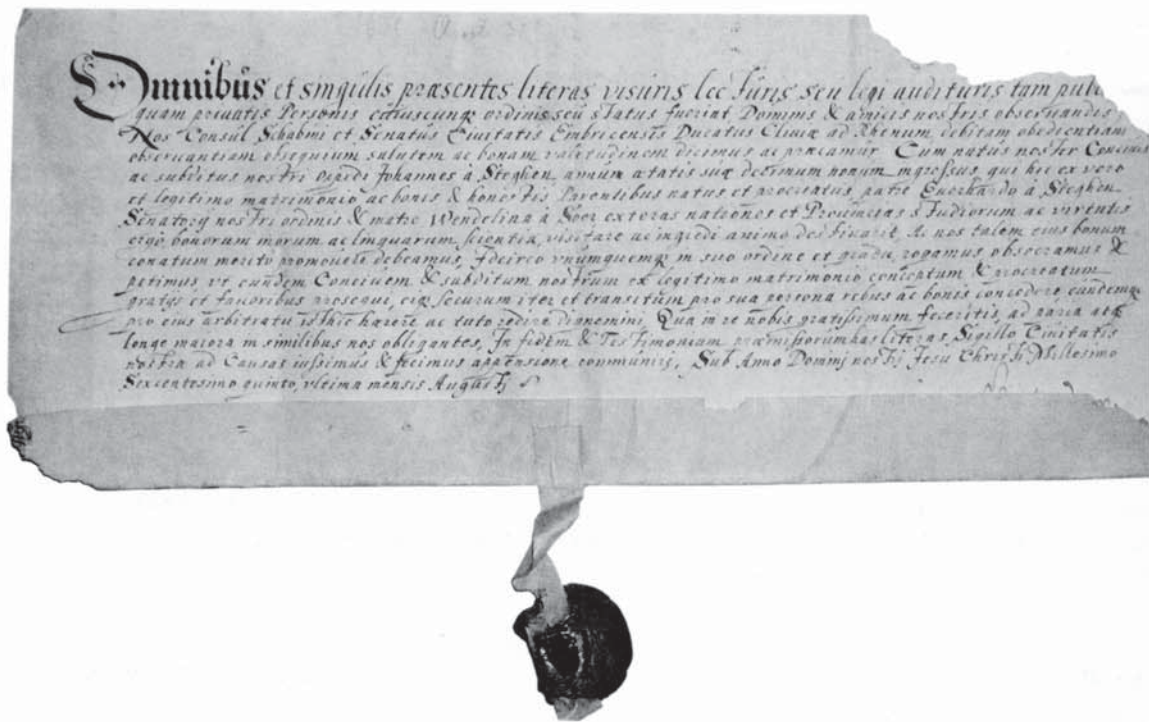 Omnibus et singulis præsentes literas visuris lecturis seu legi audituris tam pub
quam privatis Personis cuiuscunq ordinis seu status fuerint Dominis & amicis nostris observandis
Nos Consul Schabini et Senatus Civitatis Embricensis Ducatus Cliviæ ad Rhenum debitam obedientiam
observantiam obsequium salutem ac bonam valetudinem dicimus ac præcamur Cum natus noster Concivis
ac subditus nostri Opidi Johannes à Steghen annum ætatis suæ decimum nonum ingressus qui hic ex vero
et legitimo matrimonio ac bonis & honestis Parentibus natus et procreatus patre Euerhardo à Steghen
Senatorij nostri ordinis & matre Wendelina à Soer exteras nationes et Provincias studiorum ac virtutis
ergo bonorum morum ac linguarum scientia, visitare ac ingredi animo destinarit, Ac nos talem eius bonum
conatum merito promovere debeamus, Idcirco vnumquemq in suo ordine et gradu rogamus obsecramus &
petimus vt eundem Concivem & subditum nostrum ex legitimo matrimonio conceptum & procreatum
gratijs et fauoribus prosequi, eiq securum iter et transitum pro sua persona rebus ac bonis concedere eundemq
pro eius arbitratu isthic hærere ac tuto redire dignemini, Qua in re nobis gratissimum feceritis, ad paria atq
longe maiora in similibus nos obligantes, In fidem & Testimonium præmissorum has literas Sigillo Civitatis
nostræ ad Causas iussimus & fecimus appensione communiri, Sub Anno Domini nostrj Jesu Christj Millesimo
Sexcentesimo quinto, vltima mensis Augustj